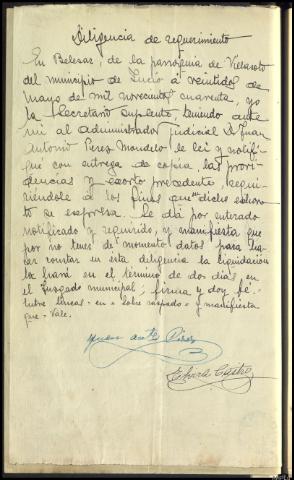 Diligencia de requerimiento
En Belesar, de la parroquia de Villasoto
del municipio de Incio á veintidos de
mayo de mil novecientos cuarenta, yo
la Secretario Suplente, teniendo ante
mi al administrador judicial D. Juan
Antonio Perez Mondelo le lei y notifi-
qué con entrega de copia, las provi-
dencias y exorto precedente, requi-
riéndole á los fines que en dicho exhorto
se expresa. Se dá por enterado
notificado y requerido, y manifiesta que
por no tener de momento datos para ha-
cer constar en esta diligencia la liquidación
la hará en el término de dos dias, en
el Juzgado municipal; firma y doy fé
entre lineas - en - sobre raspado - y manifiesta
que - Vale.
Juan Antº Pérez
Elvira Castro